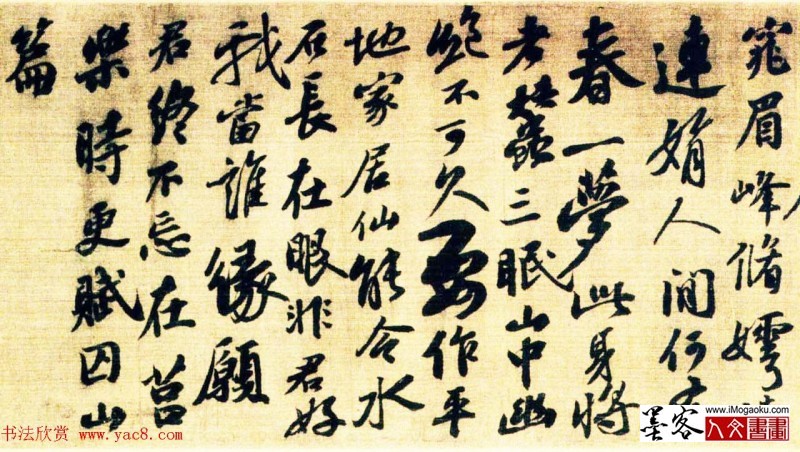 窕眉峰脩嫮
連娟人間何
春一夢此身將
老蠶三眠山中幽
絕不可久要作平
地家居仙能令水
石長在眼非君好
我當誰緣願
君終不忘在莒
樂時更賦囚山
篇
书法欣赏 www.yac8.com
墨客
www.iMogaoku.com
人文書畫